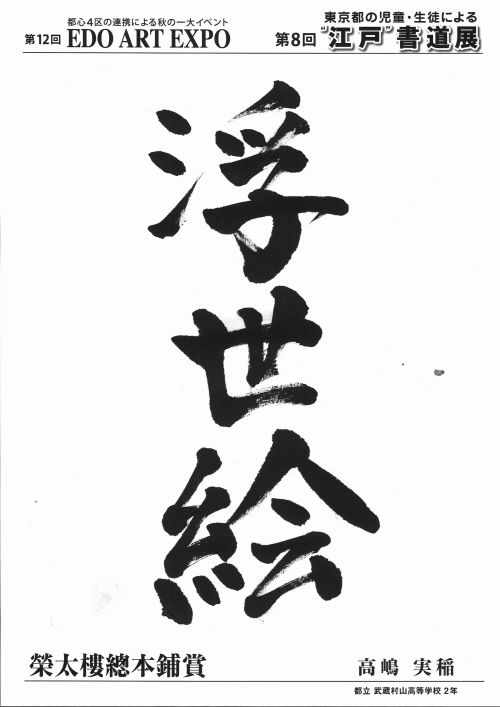 都心4区の連携による秋の一大イベント
第12回 EDO ART EXPO
東京都の児童・生徒による
第8回 “江戸”書道展
浮世絵
榮太樓總本鋪賞
高嶋 実稲
都立 武蔵村山高等学校 2年